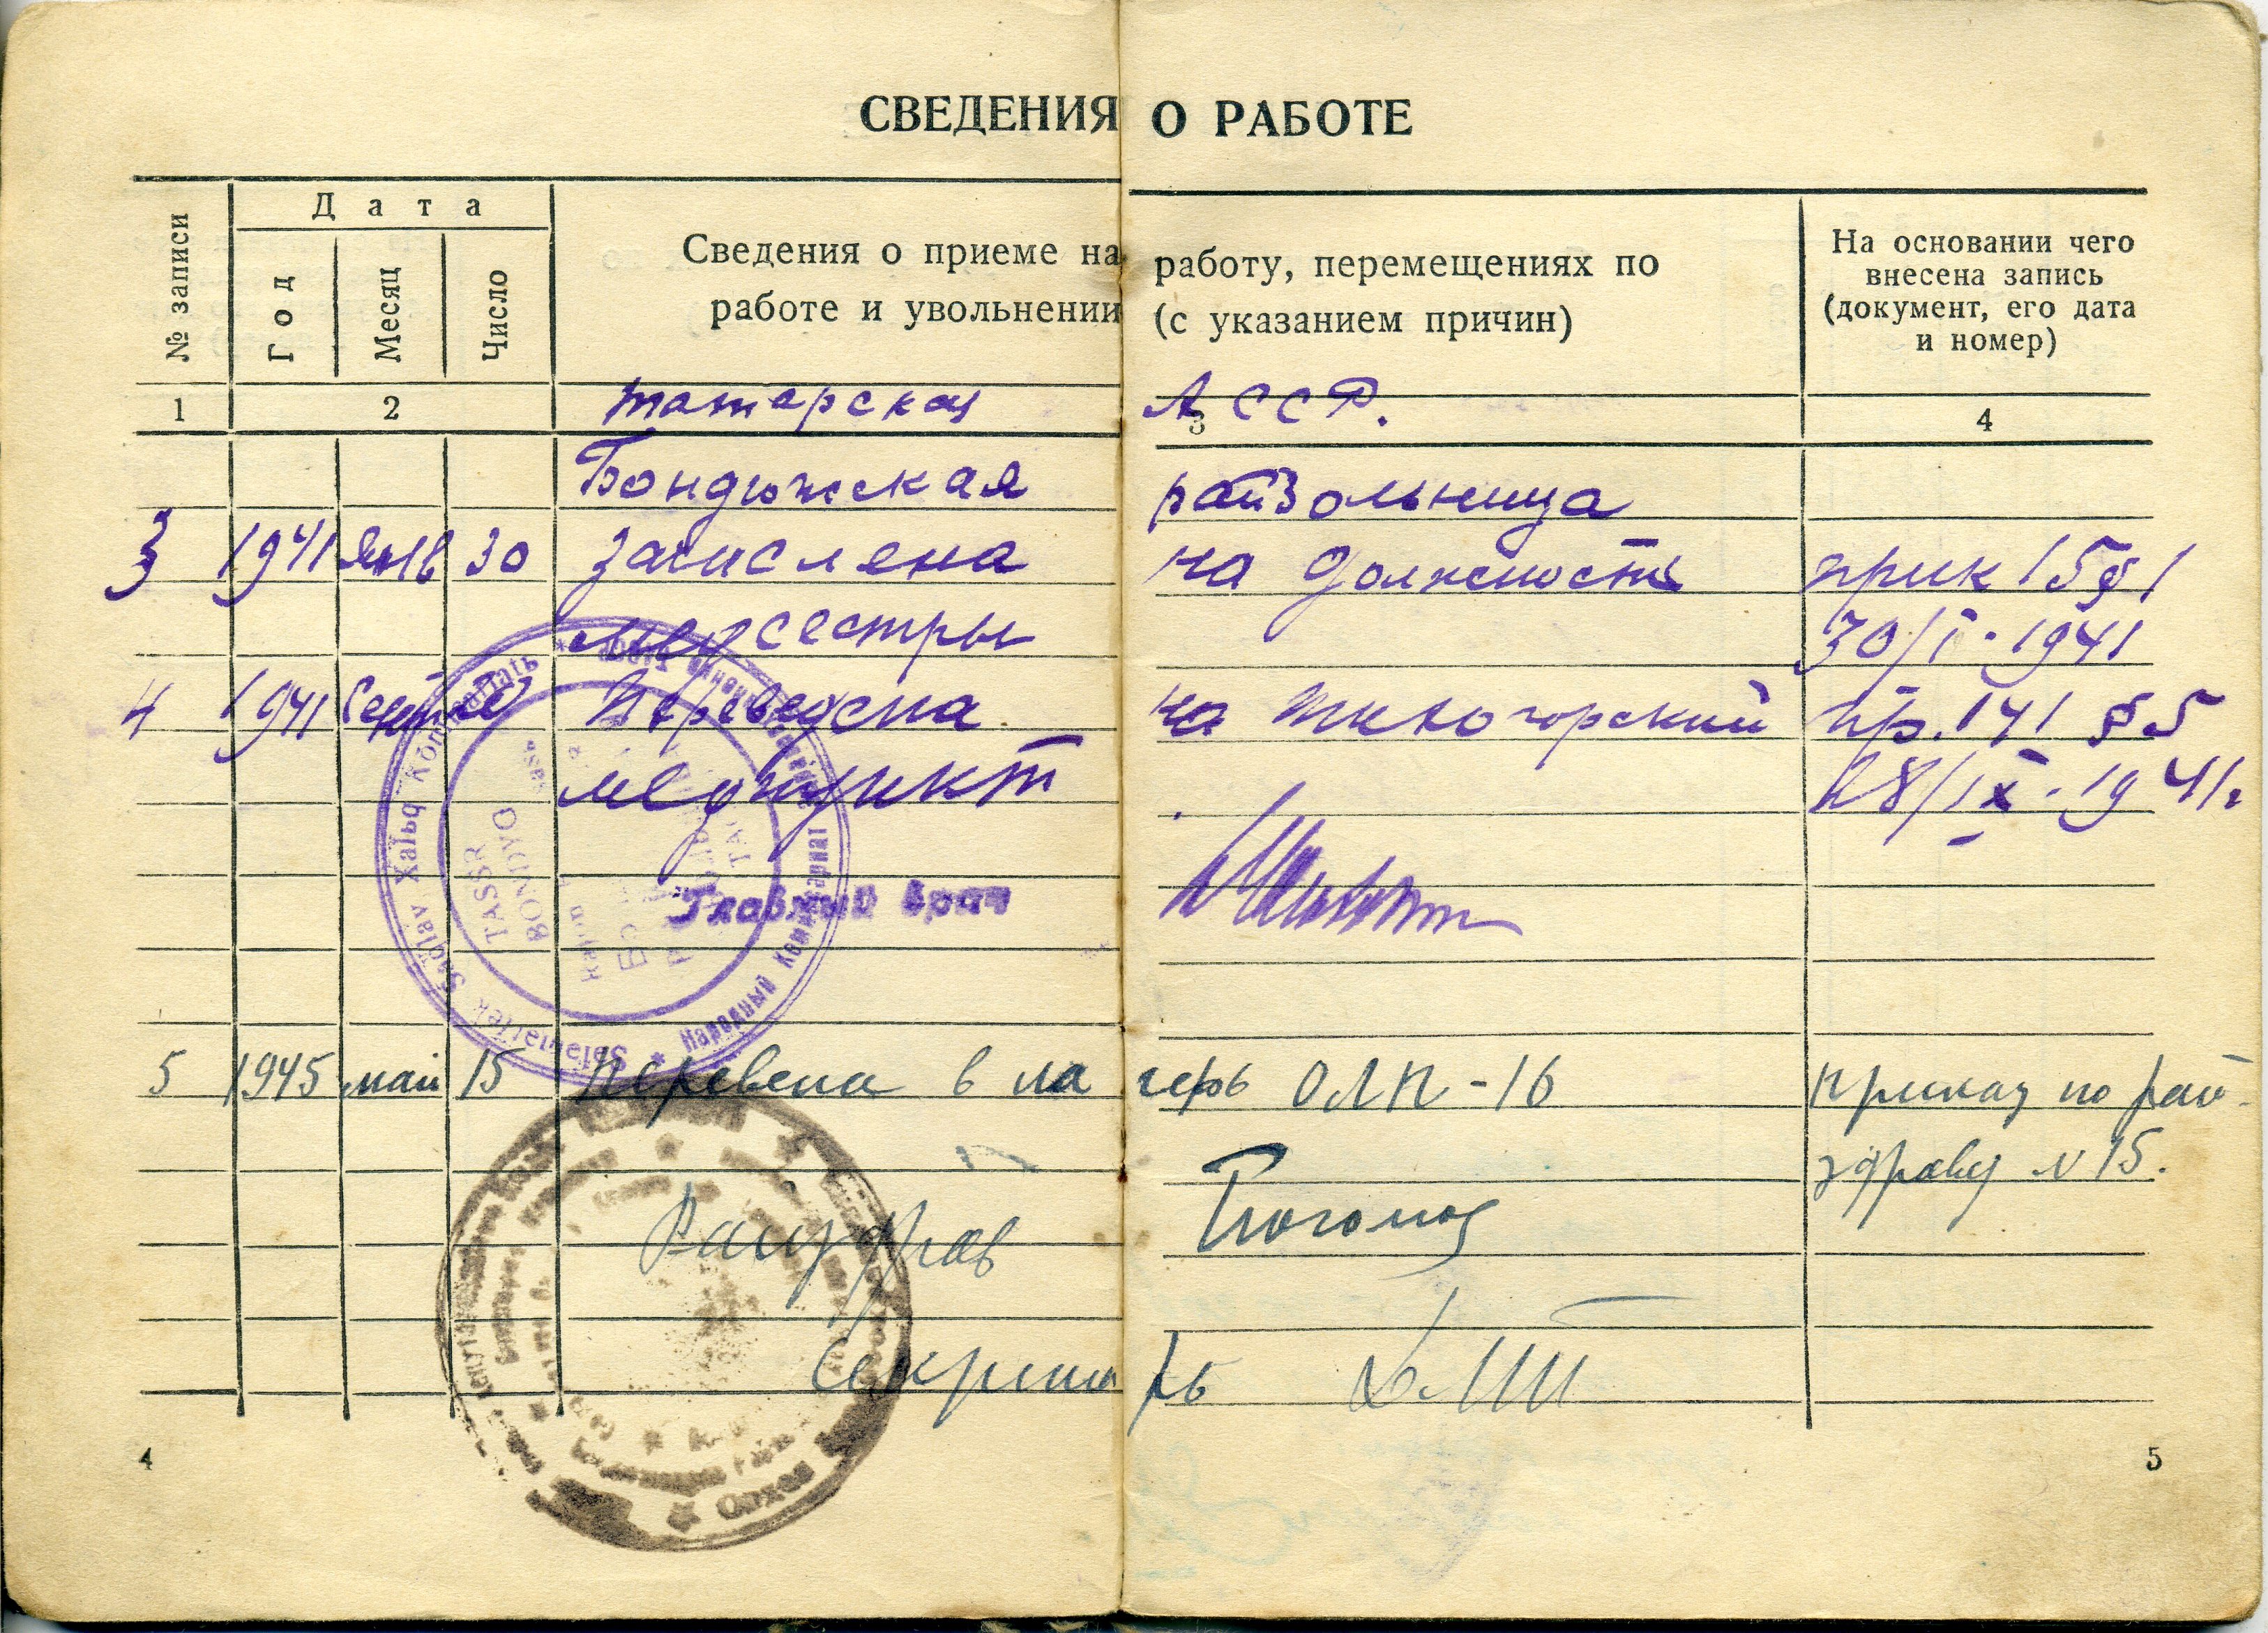 СВЕДЕНИЯ О РАБОТЕ
№ записи
Дата
Год
Месяц
Число
Сведения о приеме на работу, перемещениях по
работе и увольнении (с указанием причин)
На основании чего
внесена запись
(документ, его дата
и номер)
татарская АССР.
1 2 3 4
Бондюжская райбольница
3 1941 Янв 30 зачислена на должность прик 15 §1
медсестры 30/I-1941
4 1941 Сент переведена на тихогорский пр. 141 §5
медпункт 28/IX-1941г
Главный врач
Народный
TASSR
BONDYO
5 1945 май 15 Переведена в лагерь ОЛП-16 Приказ по рай-
здраву N 15.
Райздрав
Секретарь
4
5